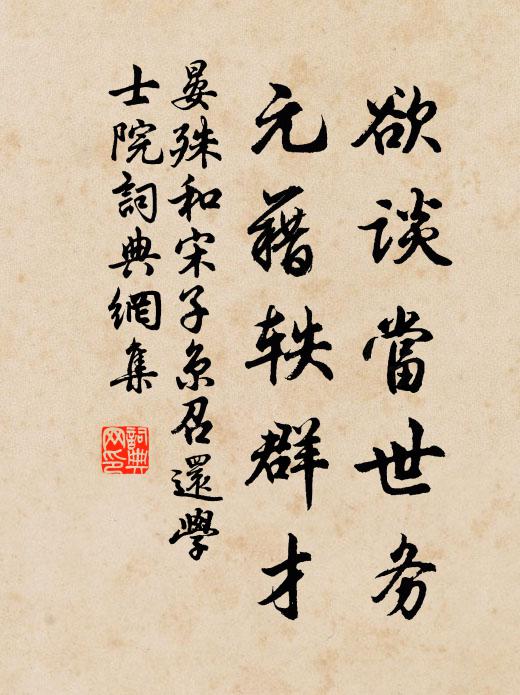 欲谈當世务
元藉轶群才
晏殊和宋子京召還學
士院詞典網集
詞典
网印